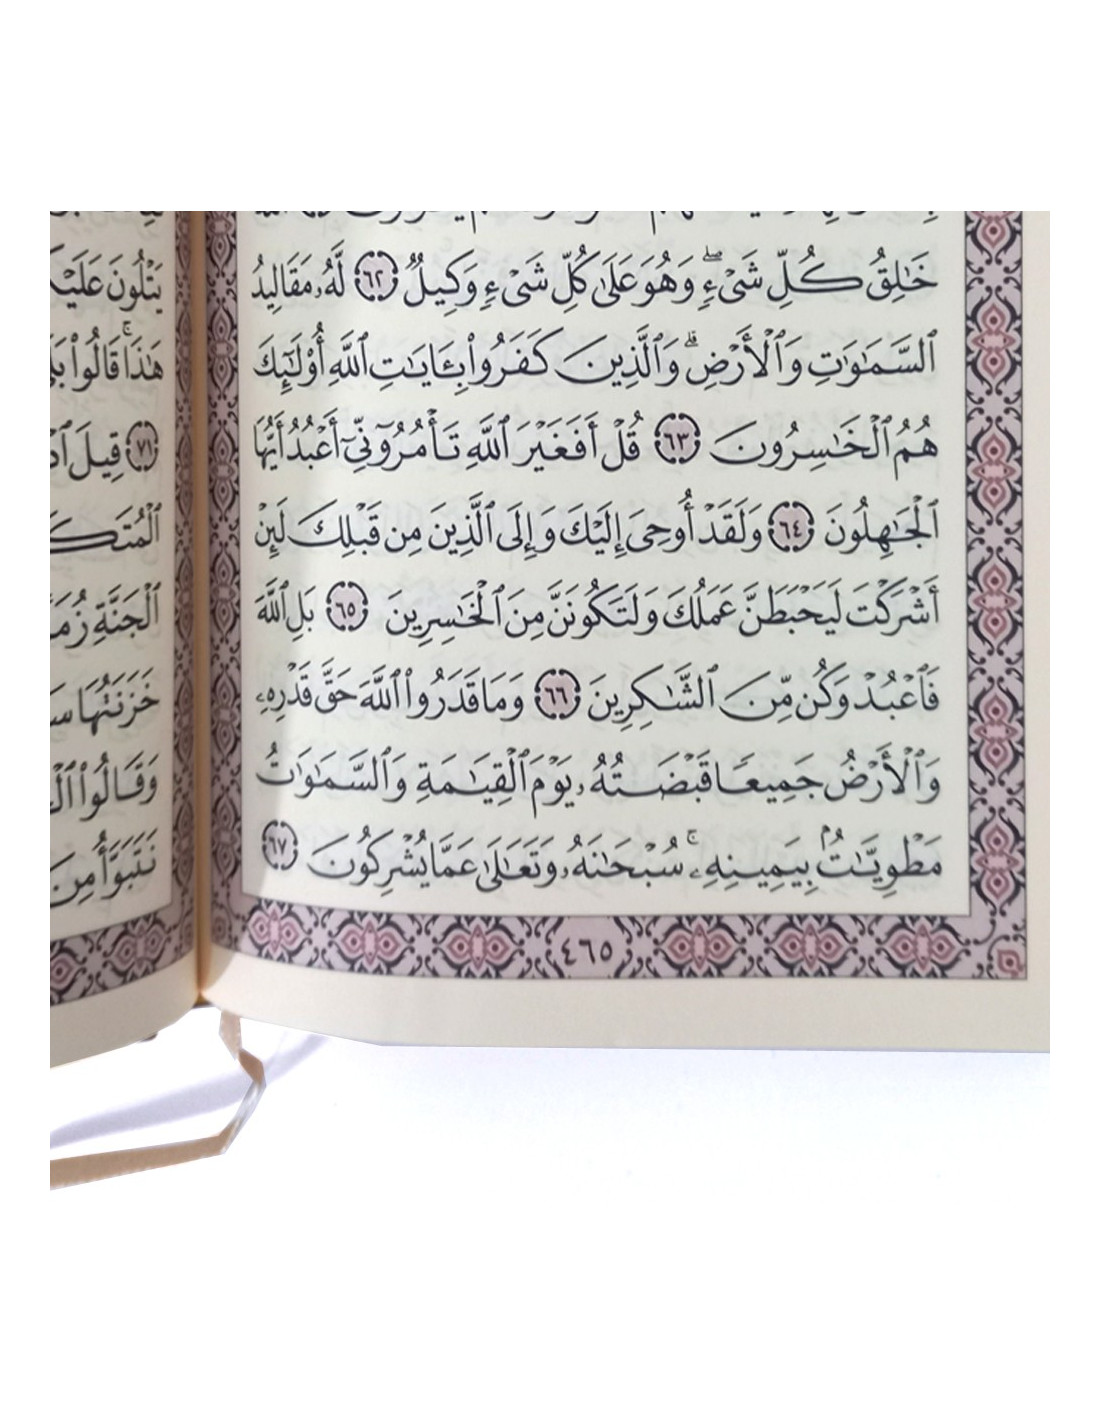 خَٰلِقُ كُلِّ شَىْءٍۖ وَهُوَ عَلَىٰ كُلِّ شَىْءٍ وَكِيلٌ ٦٢ لَّهُۥ مَقَالِيدُ
ٱلسَّمَٰوَٰتِ وَٱلْأَرْضِۗ وَٱلَّذِينَ كَفَرُوا۟ بِـَٔايَٰتِ ٱللَّهِ أُو۟لَٰٓئِكَ
هُمُ ٱلْخَٰسِرُونَ ٦٣ قُلْ أَفَغَيْرَ ٱللَّهِ تَأْمُرُوٓنِّىٓ أَعْبُدُ أَيُّهَا
ٱلْجَٰهِلُونَ ٦٤ وَلَقَدْ أُوحِىَ إِلَيْكَ وَإِلَى ٱلَّذِينَ مِن قَبْلِكَ لَئِنْ
أَشْرَكْتَ لَيَحْبَطَنَّ عَمَلُكَ وَلَتَكُونَنَّ مِنَ ٱلْخَٰسِرِينَ ٦٥ بَلِ ٱللَّهَ
فَٱعْبُدْ وَكُن مِّنَ ٱلشَّٰكِرِينَ ٦٦ وَمَا قَدَرُوا۟ ٱللَّهَ حَقَّ قَدْرِهِۦ
وَٱلْأَرْضُ جَمِيعًا قَبْضَتُهُۥ يَوْمَ ٱلْقِيَٰمَةِ وَٱلسَّمَٰوَٰتُ
مَطْوِيَّٰتٌۢ بِيَمِينِهِۦۚ سُبْحَٰنَهُۥ وَتَعَٰلَىٰ عَمَّا يُشْرِكُونَ ٦٧
٤٦٥
يَتْلُونَ
هَٰذَاۚ قَالُوا۟
٧١ قِيلَ
ٱلْجَنَّةِ
خَزَنَتُهَا
وَقَالُوا۟
نَتَبَوَّأُ مِنَ